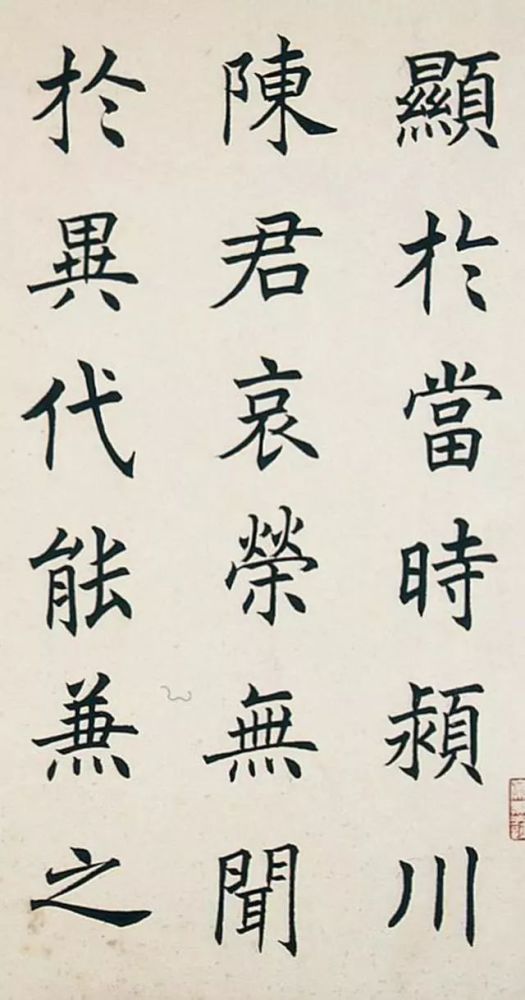 顯於當時潁川
陳君哀榮無聞
於異代能兼之